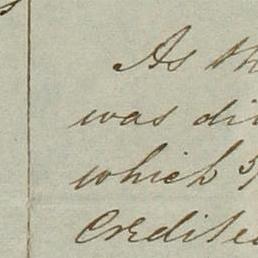 As th
was di
which 3/
Credite